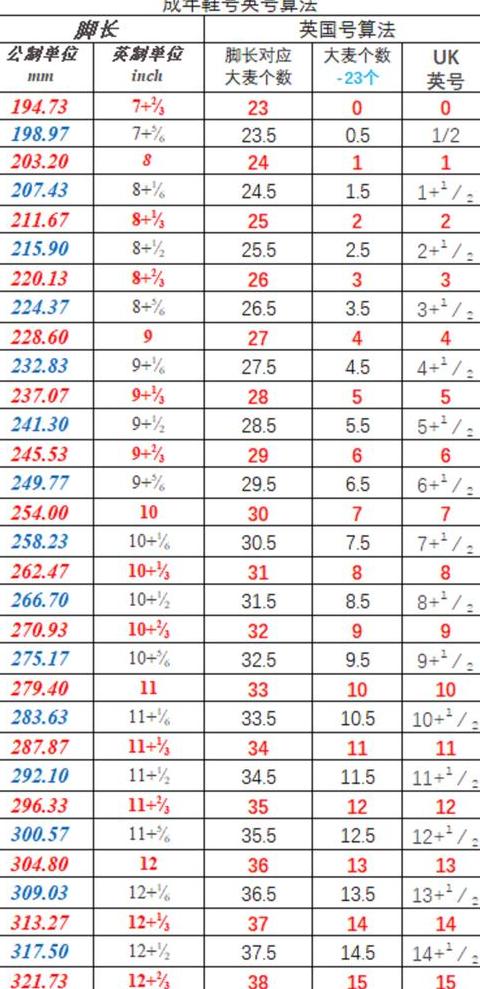 成年鞋号英号算法
脚长 英国号算法
公制单位 英制单位 脚长对应 大麦个数 UK
mm inch 大麦个数 -23个 英号
194.73 7+⅔ 23 0 0
198.97 7+⅚ 23.5 0.5 1/2
203.20 8 24 1 1
207.43 8+⅙ 24.5 1.5 1+¹/₂
211.67 8+⅓ 25 2 2
215.90 8+½ 25.5 2.5 2+¹/₂
220.13 8+⅔ 26 3 3
224.37 8+⅚ 26.5 3.5 3+¹/₂
228.60 9 27 4 4
232.83 9+⅙ 27.5 4.5 4+¹/₂
237.07 9+⅓ 28 5 5
241.30 9+½ 28.5 5.5 5+¹/₂
245.53 9+⅔ 29 6 6
249.77 9+⅚ 29.5 6.5 6+¹/₂
254.00 10 30 7 7
258.23 10+⅙ 30.5 7.5 7+¹/₂
262.47 10+⅓ 31 8 8
266.70 10+½ 31.5 8.5 8+¹/₂
270.93 10+⅔ 32 9 9
275.17 10+⅚ 32.5 9.5 9+¹/₂
279.40 11 33 10 10
283.63 11+⅙ 33.5 10.5 10+¹/₂
287.87 11+⅓ 34 11 11
292.10 11+½ 34.5 11.5 11+¹/₂
296.33 11+⅔ 35 12 12
300.57 11+⅚ 35.5 12.5 12+¹/₂
304.80 12 36 13 13
309.03 12+⅙ 36.5 13.5 13+¹/₂
313.27 12+⅓ 37 14 14
317.50 12+½ 37.5 14.5 14+¹/₂
321.73 12+⅔ 38 15 15